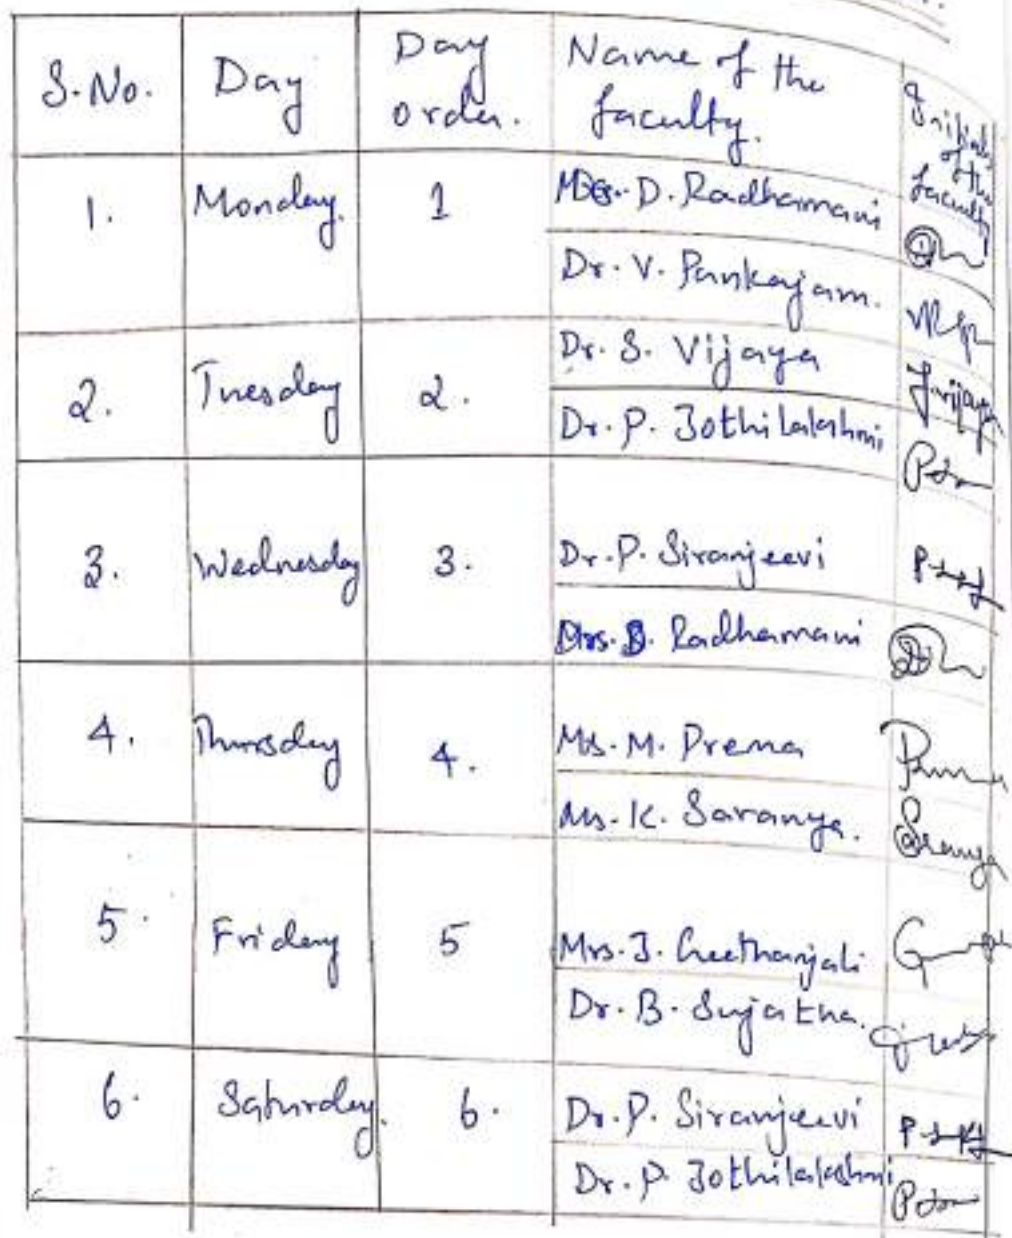 S.No. Day Day order. Name of the faculty. Initials of the faculty
1. Monday. 1 Mrs. D. Radhamani
Dr. V. Pankajam.
2. Tuesday 2. Dr. S. Vijaya S.vijaya
Dr. P. Jothilakshmi
3. Wednesday 3. Dr. P. Siranjeevi
Mrs. D. Radhamani
4. Thursday 4. Ms. M. Prema
Ms. K. Saranya.
5. Friday 5 Mrs. J. Geethanjali
Dr. B. Sujatha.
6. Saturday. 6. Dr. P. Siranjeevi
Dr. P. Jothilakshmi